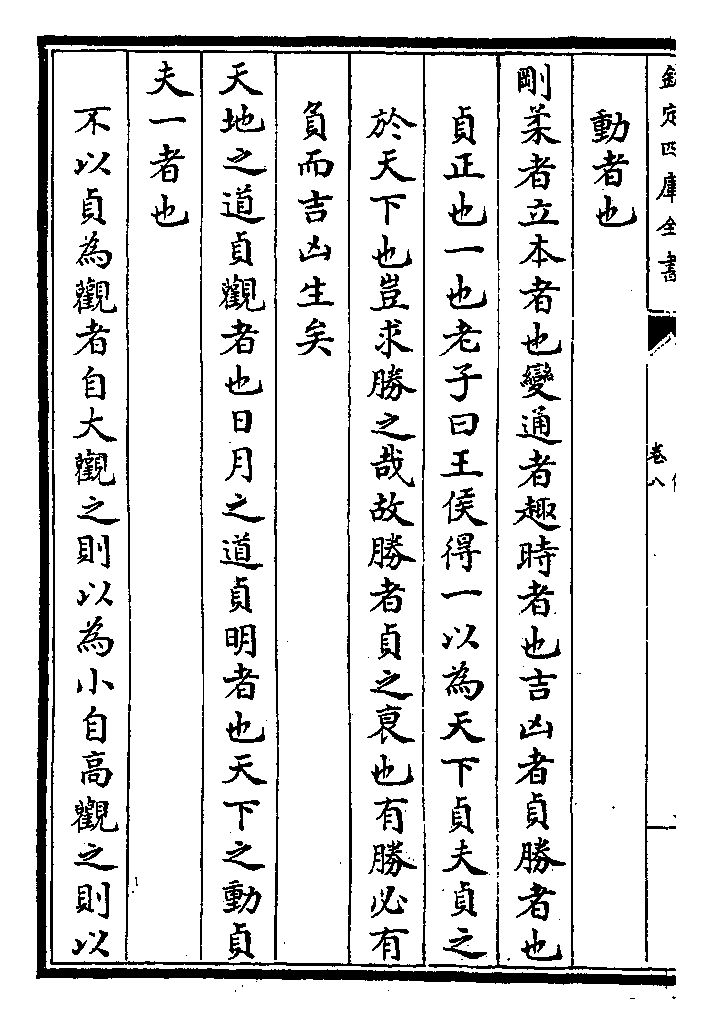 欽定四庫全書
卷八
動者也
剛柔者立本者也變通者趣時者也吉凶者貞勝者也
貞正也一也老子曰王侯得一以為天下貞夫貞之
於天下也豈求勝之哉故勝者貞之衰也有勝必有
負而吉凶生矣
天地之道貞觀者也日月之道貞明者也天下之動貞
夫一者也
不以貞為觀者自大觀之則以為小自高觀之則以